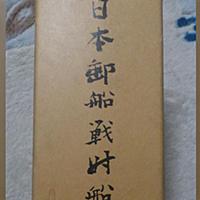 日本郵船戦时船